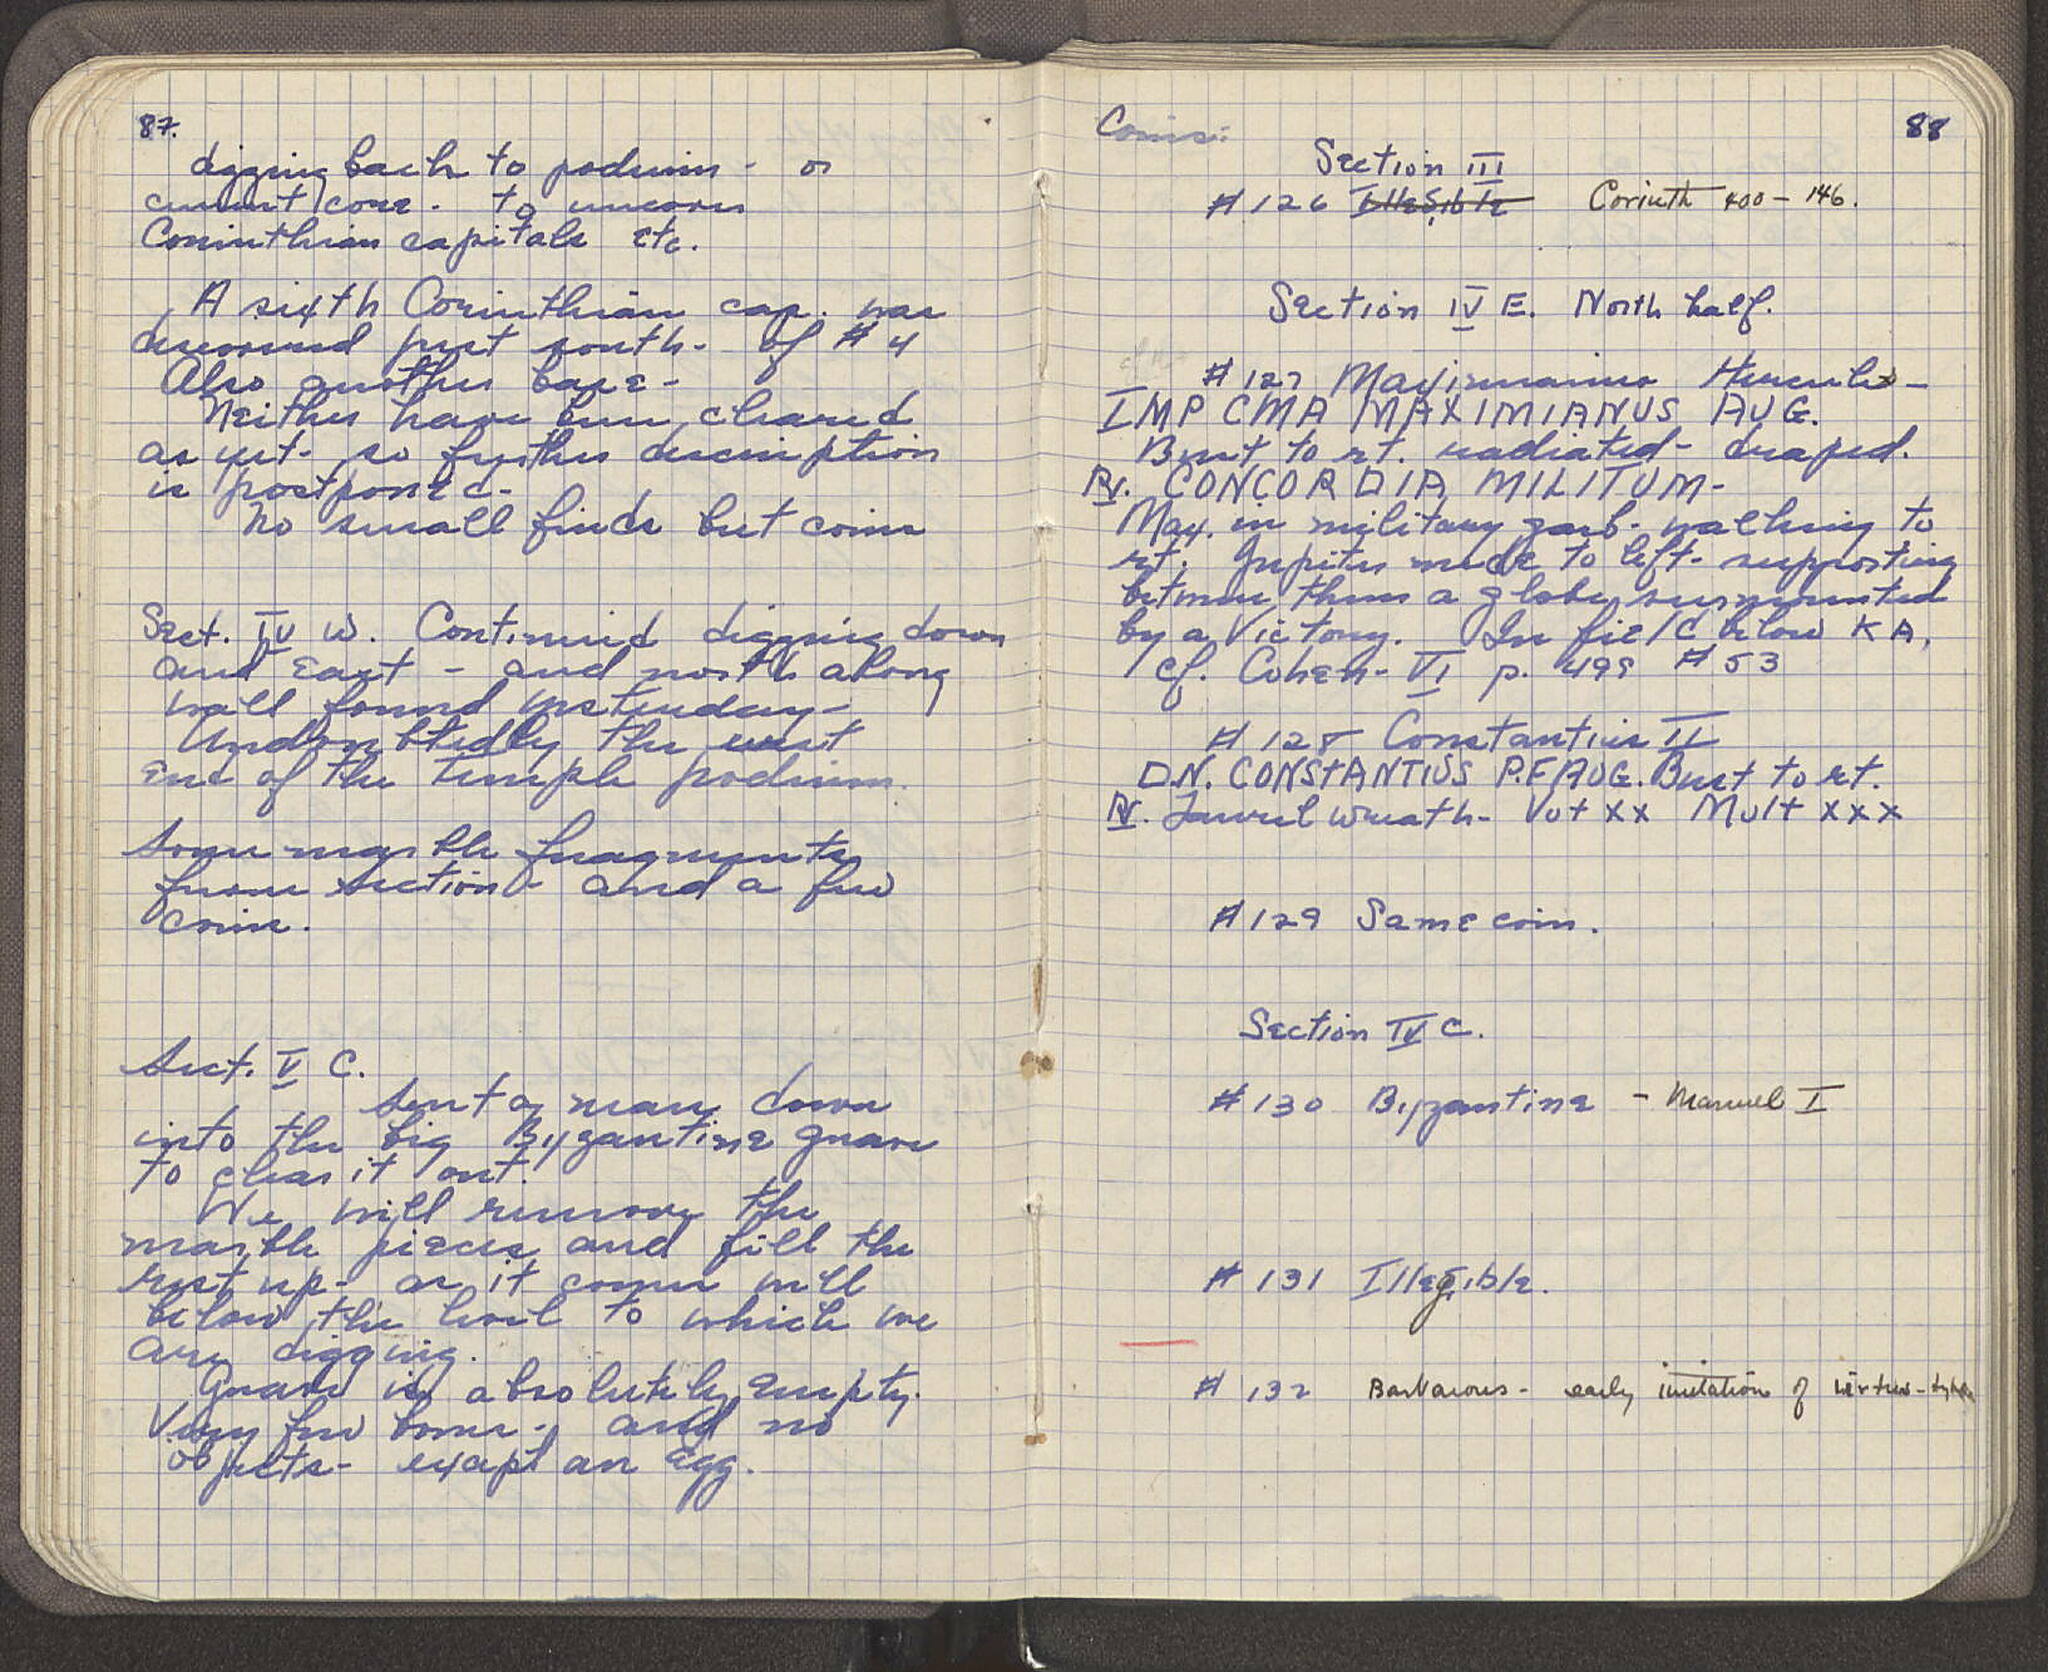 87.
digging back to podium - or
cement core - to uncover
Corinthian capitals etc.
A sixth Corinthian cap. was
discovered just south - of # 4
Also another base -
Neither have been cleared
as yet - so further description
is postponed -
No small finds but coins
Sect. IV W. Continued digging down
and East - and north along
wall found yesterday -
Undoubtedly the west
end of the temple podium.
Some marble fragments
from section - and a few
coins.
Sect. V C.
Sent a man down
into the big Byzantine grave
to clear it out.
We will remove the
marble pieces and fill the
rest up - as it comes well
below the level to which we
are digging.
Grave is absolutely empty.
Very few bones - and no
objects - except an egg.
Coins:
88
Section III
# 126 Illegible Corinth 400 - 146.
Section IV E. North half.
# 127 Maximianus Hercules -
IMP CMA MAXIMIANUS AUG.
Bust to rt. radiated - draped.
Rv. CONCORDIA MILITUM -
Max. in military garb - walking to
rt. Jupiter nude to left - supporting
between them a globe surmounted
by a Victory. In field below KA.
cf. Cohen - VI p. 499 # 53
# 128 Constantius II
D.N. CONSTANTIUS P.F AUG. Bust to rt.
Rv. Laurel wreath - Vot XX Mult XXX
# 129 Same coin.
Section IV C.
# 130 Byzantine - Manuel I
# 131 Illegible.
# 132 Barbarous - early imitation of virtus - type